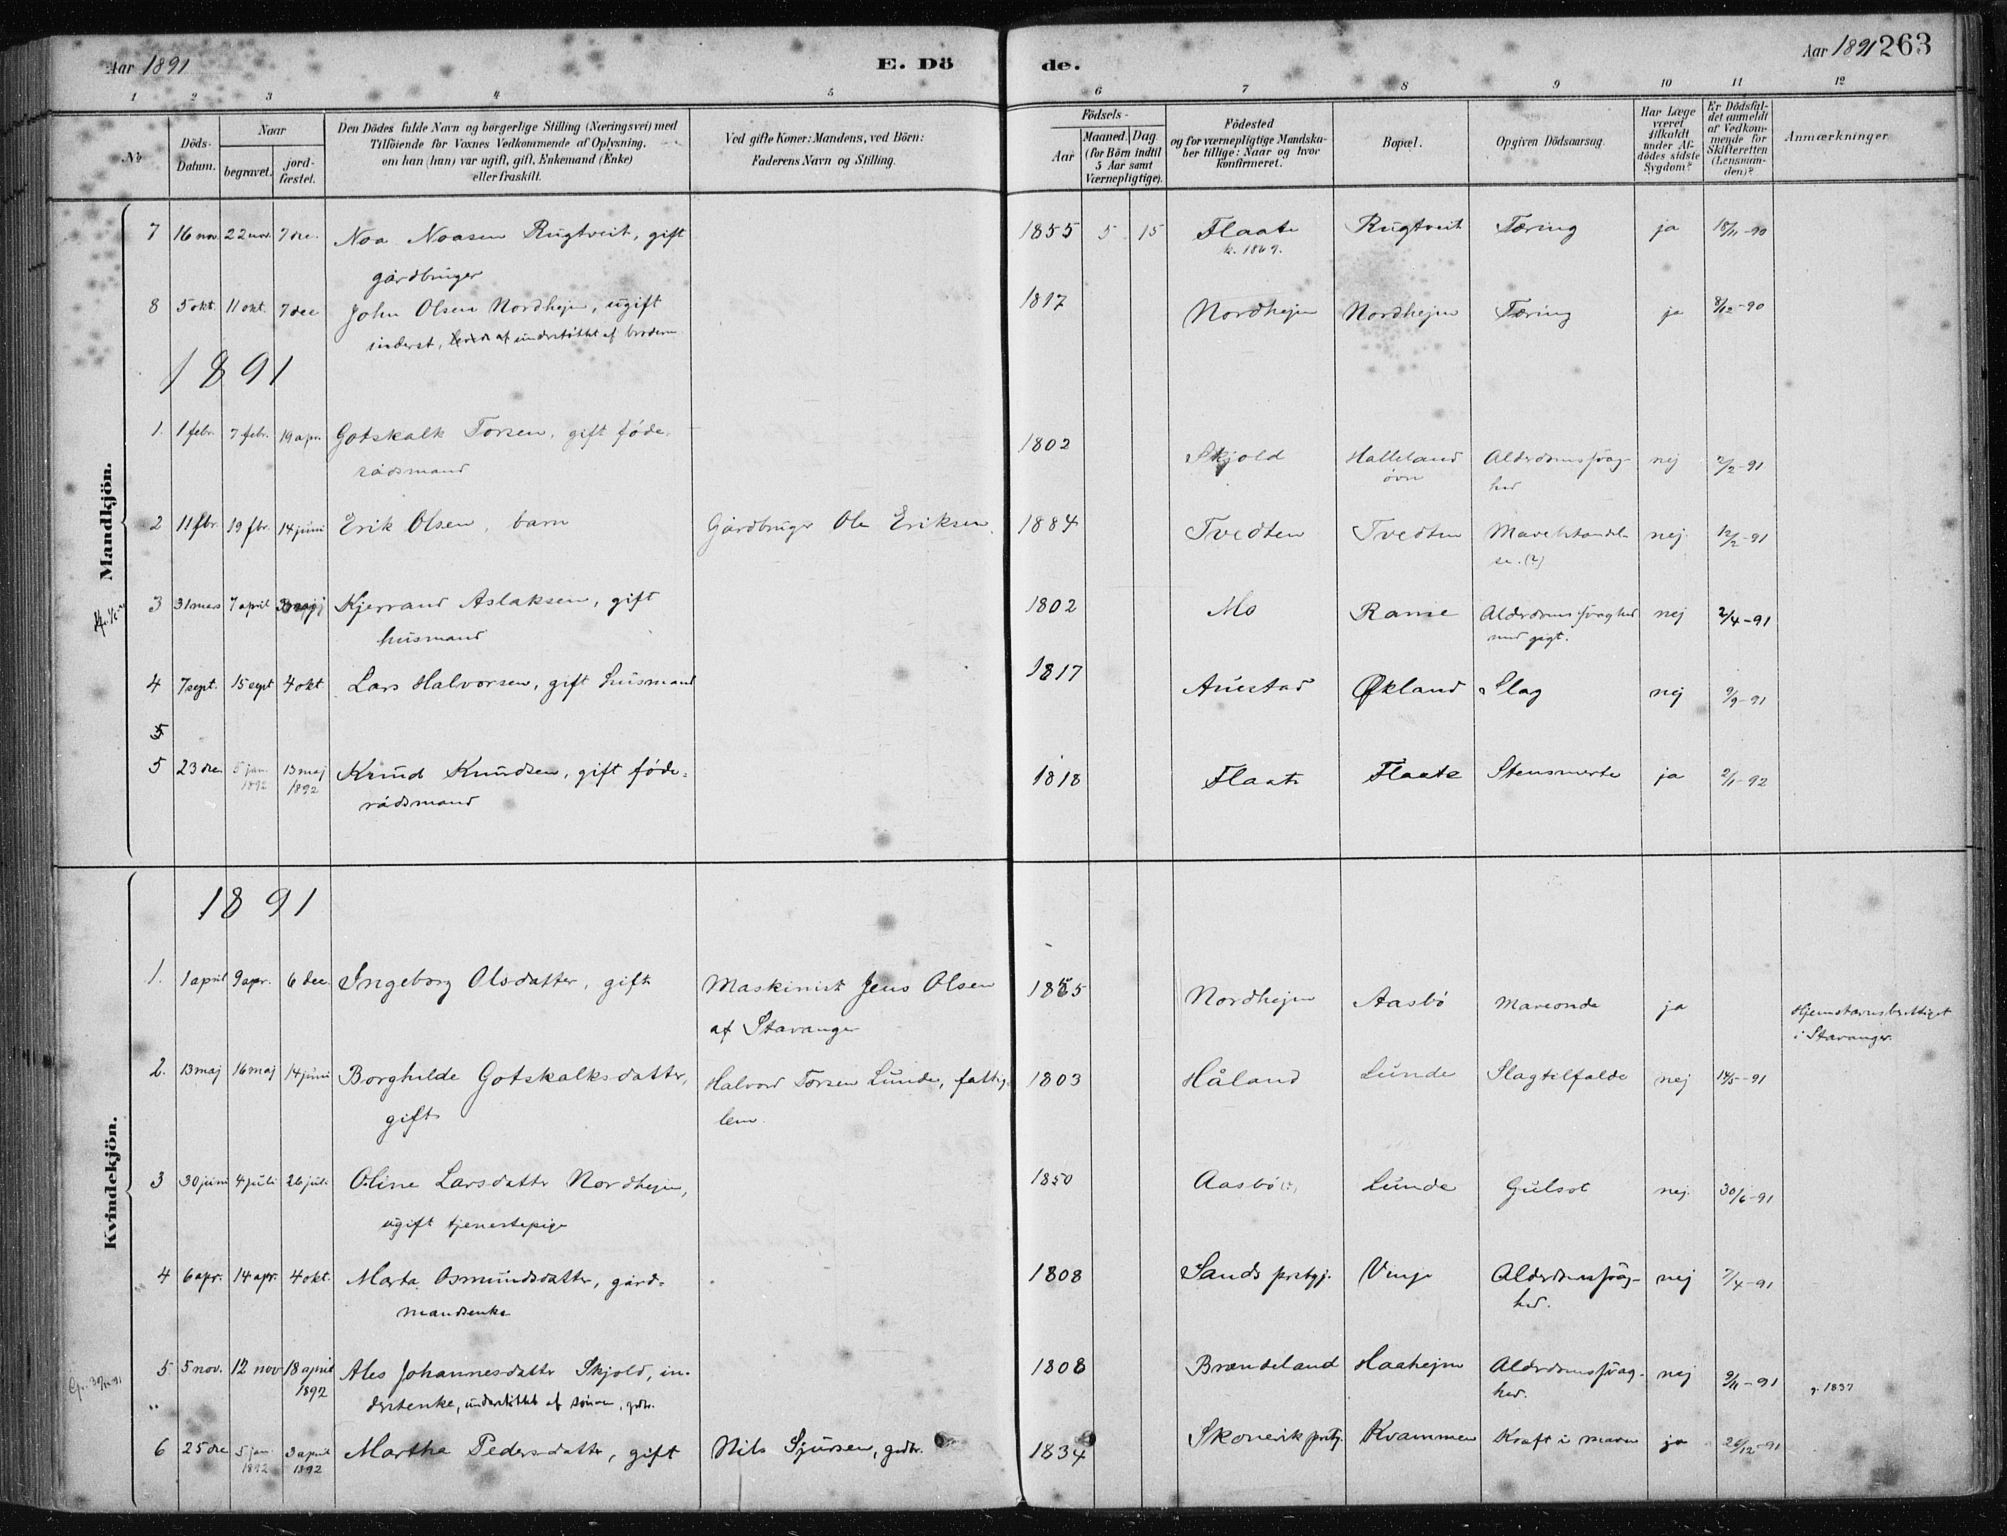 Aar 1891
E. Dö
de.
Aar 1891
263
1 2 3 4 5 6 7 8 9 10 11 12
No
Döds-Datum.
Naar
begravet.
jordfæstet.
Den Dödes fulde Navn og borgerlige Stilling (Næringsvei) med
Tilföiende for Voxnes Vedkommende af Oplysning,
om han (hun) var ugift, gift, Enkemand (Enke)
eller fraskilt.
Ved gifte Koner: Mandens, ved Börn:
Faderens Navn og Stilling.
Födsels-
Aar
Maaned. Dag
(for Börn indtil
5 Aar samt
Værnepligtige).
Födested
og for værnepligtige Mandskaber tillige: Naar og hvor
konfirmeret.
Bopæl.
Opgiven Dödsaarsag.
Har Læge
været
tilkaldt
under Afdödes sidste
Sygdom?
Er Dödsfaldet anmeldt
af Vedkommende for
Skifteretten
(Lensmanden)?
Anmærkninger
Mandkjön.
7 16 nov 22 nov. 7 dec. Noa Noasen Rugtveit, gift 1855 5 15 Flaate Rugtveit Tæring ja 18/11-90
k. 1869.
gårdbruger
8 5 okt. 11 okt. 7 dec John Olsen Nordhejm, ugift 1817 Nordhejm Nordhejm Tæring ja 8/12-90
inderst, understøttet af brodern
1891
1. 1 febr. 7 febr. 19 apr. Gotskalk Torsen, gift føde- 1802 Skjold Halleland Alderdomssvag- nej 2/2-91
rådsmand øvn hed
2 11 fbr. 19 fbr. 14 juni Erik Olsen, barn Gårdbruger Ole Eriksen 1884 Tvedten Tvedten nej 12/2-91
se. (?)
3 31 mars 7 april Kjerrand Aslaksen, gift 1802 Mo Rame Alderdomssvaghed nej 2/4-91
husmand med gigt.
4 7 sept. 15 sept 4 okt. Lars Halvorsen, gift husmand 1817 Auestad Økland Slag nej 9/9-91
5
5 23 dec 5 jan. 1892 13 maj 1892 Knud Knudsen, gift føde- 1818 Flaate Flaate Stensmerte ja 2/1-92
rådsmand
Kvindekjön.
1891
1. 1 april 9 apr. 6 dec. Ingeborg Olsdatter, gift Maskinist Jens Olsen Nordhejm Aasbö Maveonde ja Hjemstavnsberettiget
af Stavanger i Stavanger.
2. 13 maj 16 maj 14 juni Borghilde Gotskalksdatter, Halvord Torsen Lunde, fattig- 1803 Håland Lunde Slagtilfælde nej 14/5-91
gift lem.
3 30 juni 4 juli 26 juli Oline Larsdatter Nordhejm, 1850 Aasbö (?) Lunde Gulsot nej. 30/6-91
ugift tjenestepige
4 6 apr. 14 apr. 4 okt. Marta Osmundsdatter, gård- 1808 Sands prstgj. Vinje Alderdomssvag- nej 7/4-91
mandsenke hed.
5 5 nov. 12 nov 18 april 1892 Ales Johannesdatter Skjold, in- 1808 Brændeland Haahejm Alderdomssvag- nej 9/11-91 g. 1837
derstenke, understöttet af sönnen, gdbr. hed.
6 25 dec 5 jan. 1892 3 april 1892 Martha Pedersdatter, gift Nils Sjursen, gdbr. 1834 Skonevik prstgj. Kvammen Kræft i maven ja 26/12-91